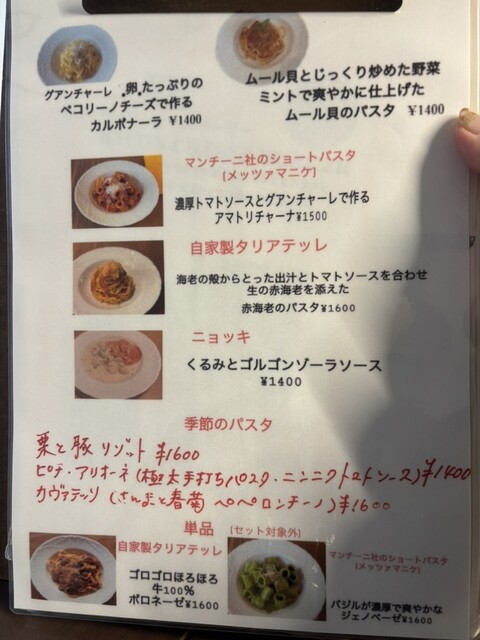 グアンチャーレ、卵たっぷりの
ペコリーノチーズで作る
カルボナーラ ¥1400
ムール貝とじっくり炒めた野菜
ミントで爽やかに仕上げた
ムール貝のパスタ ¥1400
マンチーニ社のショートパスタ
(メッツァマニケ)
濃厚トマトソースとグアンチャーレで作る
アマトリチャーナ¥1500
自家製タリアテッレ
海老の殻からとった出汁とトマトソースを合わせ
生の赤海老を添えた
赤海老のパスタ¥1600
ニョッキ
くるみとゴルゴンゾーラソース
¥1400
季節のパスタ
栗と豚 リゾット ¥1600
ピチ・アリオーネ(極太手打ちパスタ・ニンニクトマトソース)¥1400
カヴァテッリ(さんまと春菊 ペペロンチーノ)¥1600
単品 (セット対象外)
自家製タリアテッレ
ゴロゴロほろほろ
牛100%
ボロネーゼ¥1600
マンチーニ社のショートパスタ
(メッツァマニケ)
バジルが濃厚で爽やかな
ジェノベーゼ¥1600